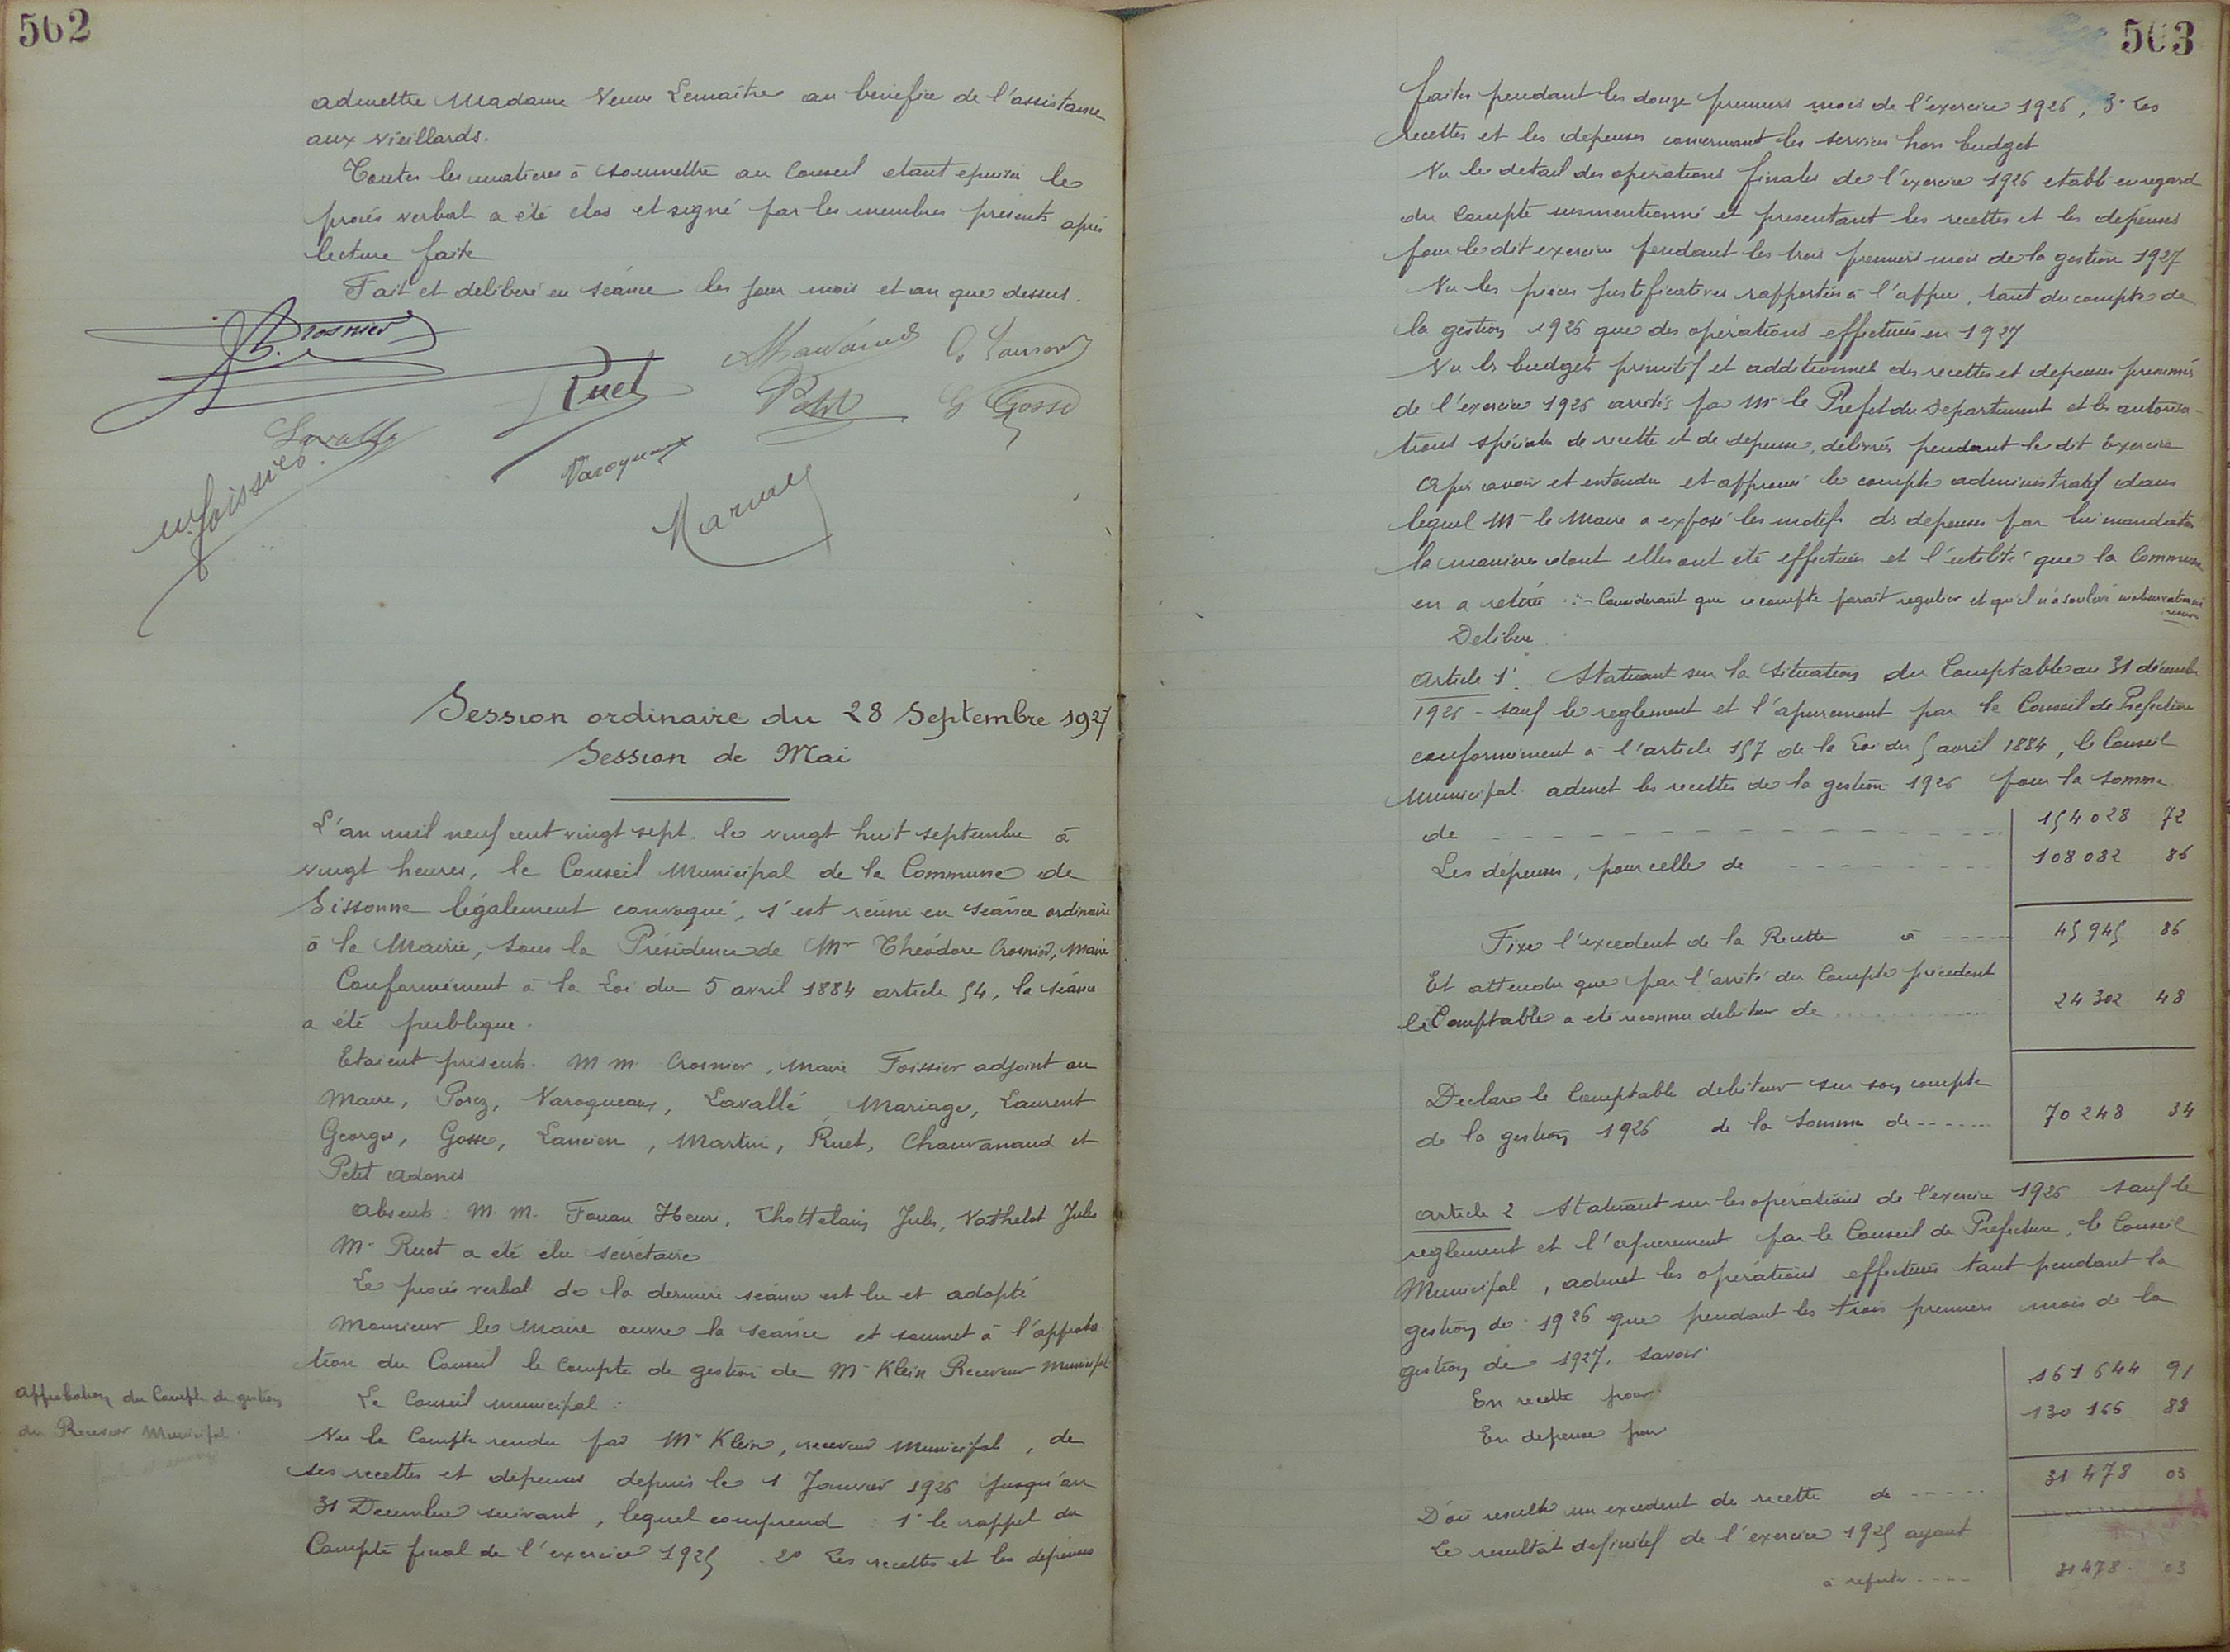 562
admettre Madame Veuve Lemaitre au bénéfice de l'assistance
aux vieillards.
Toutes les matières à soumettre au Conseil etant epuisées le
procès verbal a été clos et signé par les membres présents après
lecture faite
Fait et délibéré en séance les jour mois et an que dessus.
Crosnier
Ruet
Petit
G Gosse
Lavallé
Varoqueaux
M. Foissier
Session ordinaire du 28 Septembre 1927
Session de Mai
L'an mil neuf cent vingt sept le vingt huit septembre à
vingt heures, le Conseil Municipal de la Commune de
Sissonne légalement convoqué, s'est réuni en séance ordinaire
à la Mairie, sous la Présidence de Mr Théodore Crosnier, Maire
Conformément à la Loi du 5 avril 1884 article 54, la séance
a été publique.
Etaient présents. M m. Crosnier, Maire Foissier adjoint au
Maire, Porez, Varoqueaux, Lavallé, Mariage, Laurent
Georges, Gosse, Lancien, Martin, Ruet, Chauvanaud et
Petit Adonis
Absents : M. M. Fouan Henri, Chottelain Jules, Nathelot Jules
Mr Ruet a été élu secrétaire
Le procès verbal de la dernière séance est lu et adopté
Monsieur le Maire ouvre la séance et soumet à l'approba
tion du Conseil le compte de gestion de Mr Klein Receveur Municipal
Approbation du Compte de gestion
du Receveur Municipal
Le Conseil municipal :
Vu le Compte rendu par Mr Klein, receveur Municipal, de
ses recettes et dépenses depuis le 1 Janvier 1926 jusqu'au
31 Decembre suivant, lequel comprend : 1° le rappel du
Compte final de l'exercice 1925 . 2° Les recettes et les dépenses
503
faites pendant les douze premiers mois de l'exercice 1926, 3° Les
recettes et les dépenses concernant les services hors budget
Vu le detail des opérations finales de l'exercice 1926 etabli en regard
du Compte susmentionné et présentant les recettes et les dépenses
pour le dit exercice pendant les trois premiers mois de la gestion 1927
Vu les pièces justificatives rapportées à l'appui, tant du compte de
la gestion 1926 que des opérations effectuées en 1927
Vu les budgets primitif et additionnel des recettes et depenses presumées
de l'exercice 1926 arrêtés par Mr le Prefet du Departement et les autorisa-
tions spéciales de recette et de depense, delivrés pendant le dit Exercice
Après avoir et entendu et approuvé le compte administratif dans
lequel Mr le Maire a exposé les motifs des depenses par lui mandatées
la manière dont elles ont été effectuées et l'utilité que la Commune
en a retirée :- Considerant que ce compte parait regulier et qu'il n'a soulevé ni observation ni
reserve
Delibere
Article 1° Statuant sur la situation du Comptable au 31 décembre
1926 - sauf le reglement et l'apurement par le Conseil de Prefecture
conformément à l'article 157 de la Loi du 5 avril 1884, le Conseil
Municipal admet les recettes de la gestion 1926 pour la somme
de 154 028 72
Les dépenses, pour celle de 108 082 86
Fixe l'excedent de la Recette à 45 945 86
Et attendu que par l'arrêté du Compte précédent
le Comptable a été reconnu debiteur de 24 302 48
Declare le Comptable debiteur sur son compte
de la gestion 1926 de la somme de 70 248 34
Article 2 Statuant sur les opérations de l'exercice 1926 sauf le
reglement et l'apurement par le Conseil de Prefecture, le Conseil
Municipal, admet les opérations effectuées tant pendant la
gestion de 1926 que pendant les trois premiers mois de la
gestion de 1927. savoir
En recette pour 161 644 91
En depense pour 130 166 88
D'où resulte un excedent de recette de 31 478 03
Le resultat definitif de l'exercice 1925 ayant
à reporter 31 478 03